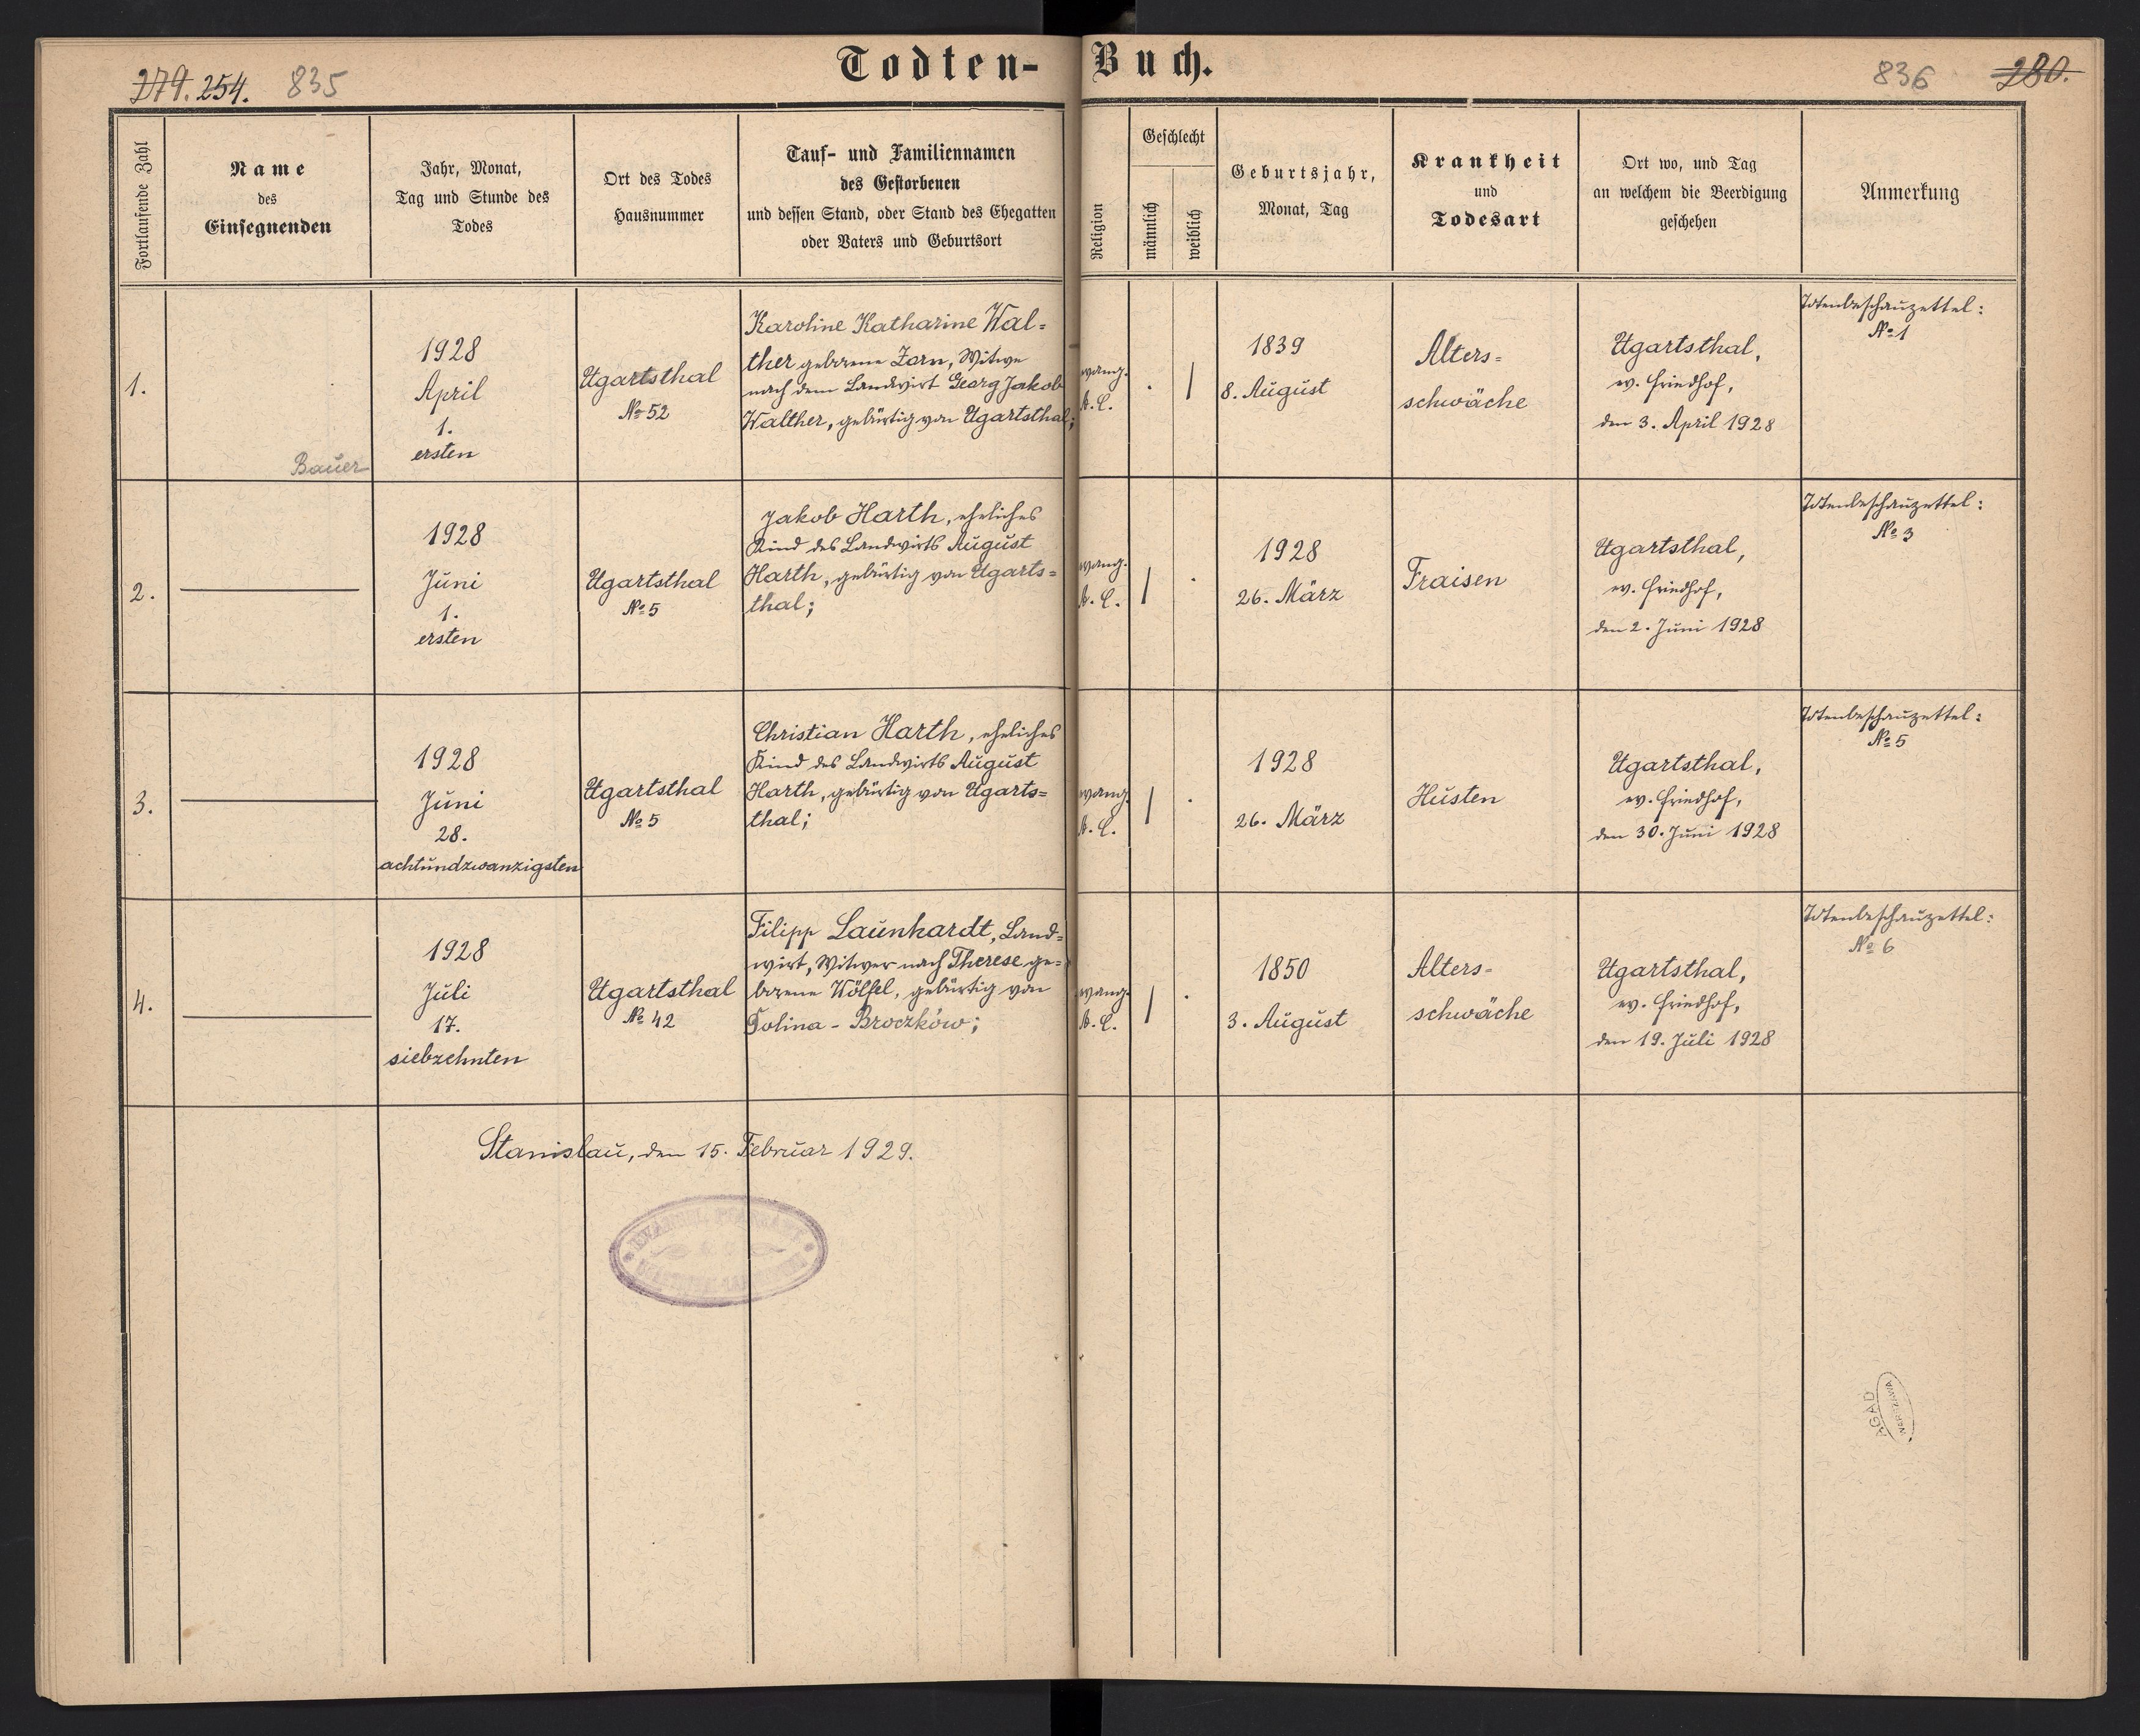 Todten-Buch.
279. 254. 835
836 280.
Fortlaufende Zahl
Name
des
Einsegnenden
Jahr, Monat,
Tag und Stunde des
Todes
Ort des Todes
Hausnummer
Tauf- und Familiennamen
des Gestorbenen
und dessen Stand, oder Stand des Ehegatten
oder Vaters und Geburtsort
Religion
Geschlecht
männlich
weiblich
Geburtsjahr,
Monat, Tag
Krankheit
und
Todesart
Ort wo, und Tag
an welchem die Beerdigung
geschehen
Anmerkung
1.
Bauer
1928
April
1.
ersten
Ugartsthal
No 52
Karoline Katharine Wal=
ther geborene Zorn, Witwe
nach dem Landwirt Georg Jakob
Walther, gebürtig von Ugartsthal;
evang.
A.C.
1839
8. August
Alters=
schwäche
Ugartsthal,
ev. Friedhof,
den 3. April 1928
Totenbeschauzettel:
No 1
2.
1928
Juni
1.
ersten
Ugartsthal
No 5
Jakob Harth, eheliches
Kind des Landwirts August
Harth, gebürtig von Ugarts=
thal;
evang.
A.C.
1928
26. März
Fraisen
Ugartsthal,
ev. Friedhof,
den 2. Juni 1928
Totenbeschauzettel:
No 3
3.
1928
Juni
28.
achtundzwanzigsten
Ugartsthal
No 5
Christian Harth, eheliches
Kind des Landwirts August
Harth, gebürtig von Ugarts=
thal;
evang.
A.C.
1928
26. März
Husten
Ugartsthal,
ev. Friedhof,
den 30. Juni 1928
Totenbeschauzettel:
No 5
4.
1928
Juli
17.
siebzehnten
Ugartsthal
No 42
Filipp Launhardt, Land=
wirt, Witwer nach Therese ge=
borene Wölfel, gebürtig von
Dolina - Broczków;
evang.
A.C.
1850
3. August
Alters=
schwäche
Ugartsthal,
ev. Friedhof,
den 19. Juli 1928
Totenbeschauzettel:
No 6
Stanislau, den 15. Februar 1929.
AGAD
WARSZAWA